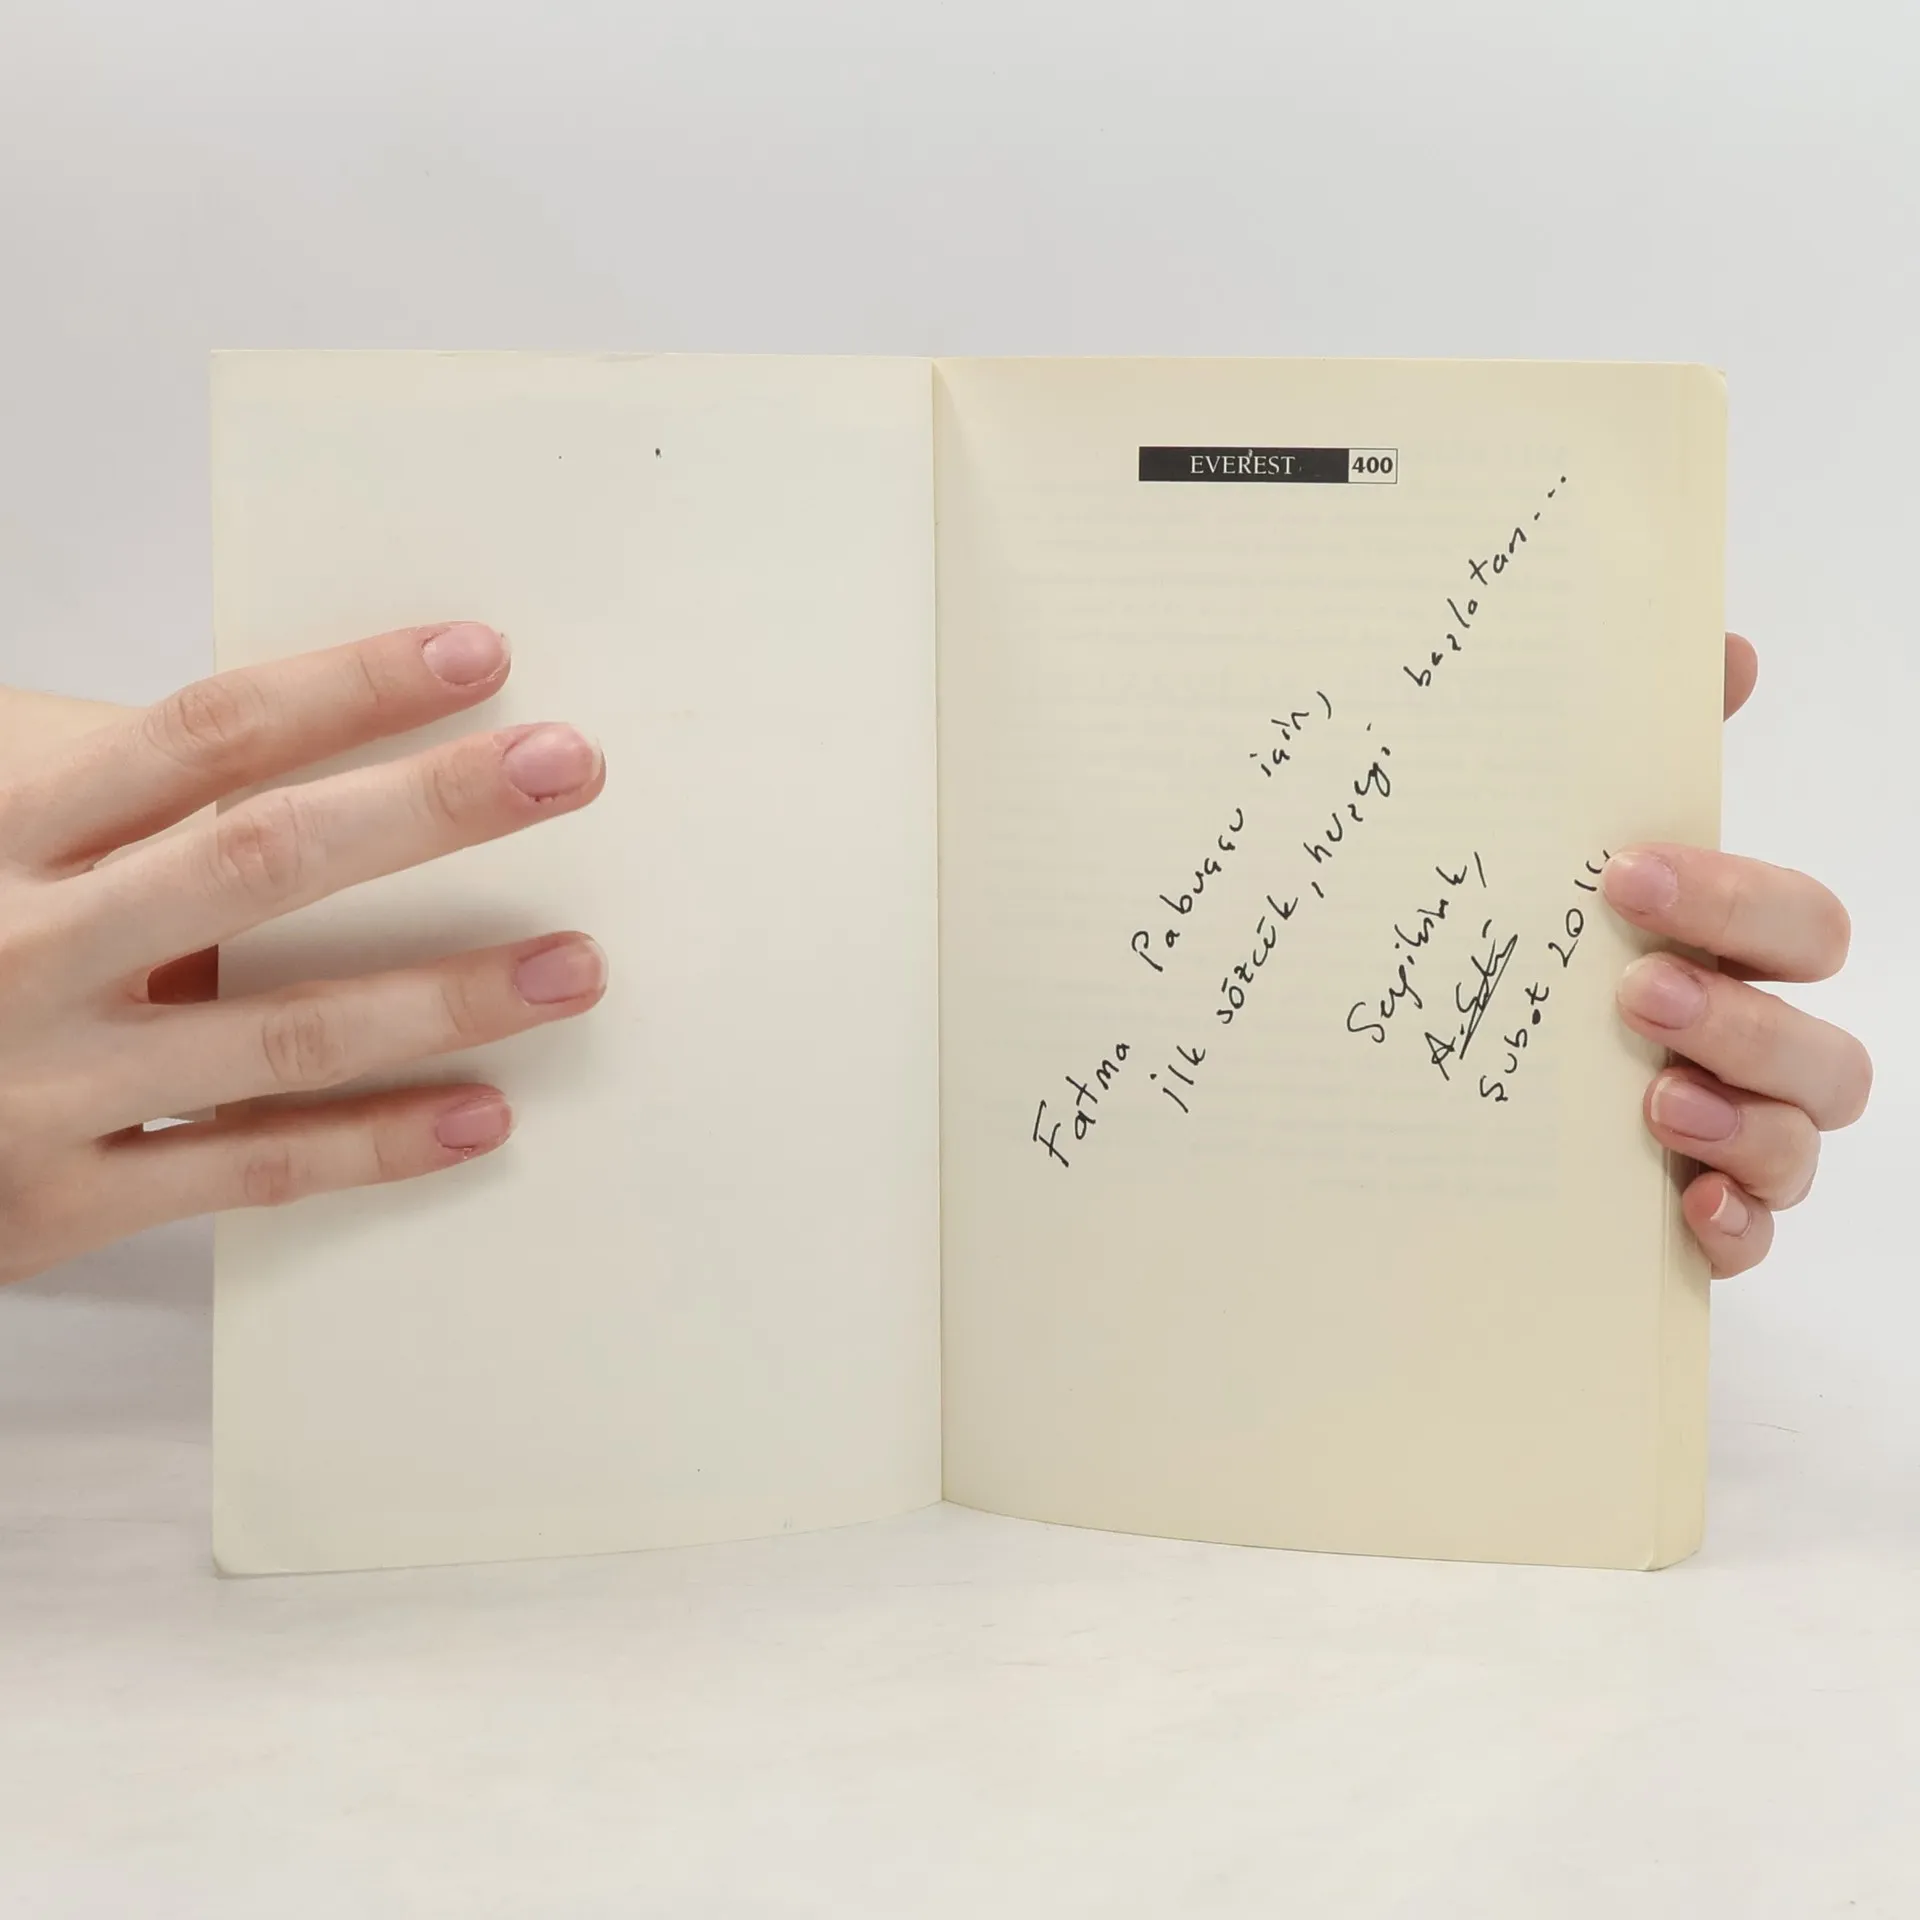 EVEREST 400
Fatma Pabuççu için,
ilk sözcük, her şeyi başlatan...
Sevgilerimle,
Şubat 20